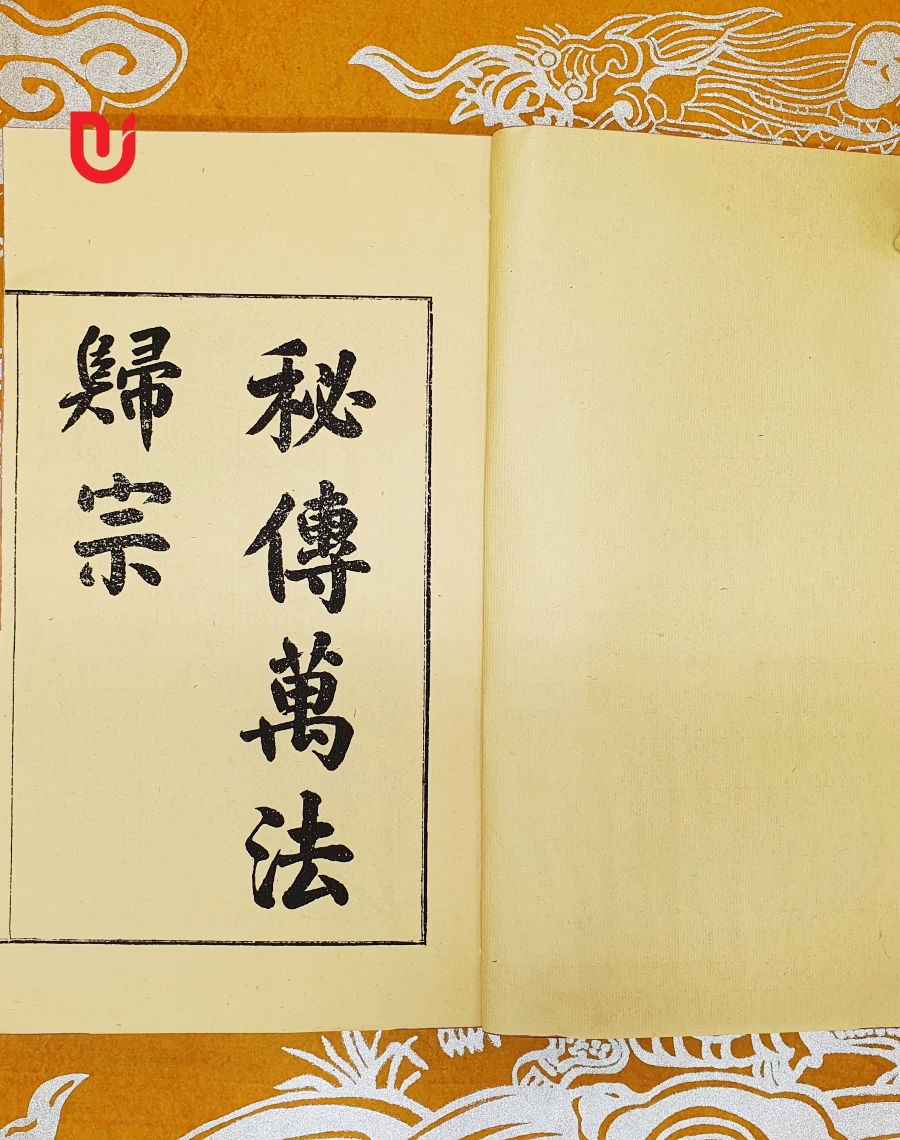 秘傳萬法
歸宗